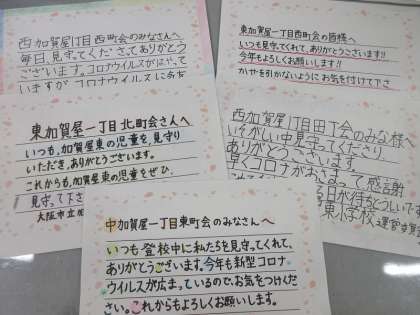 西加賀屋1丁目西町会のみなさんへ
毎日、見守ってくださってありがとう
ございます。コロナウイルスがはやって
いますが、コロナウイルスに
東加賀屋一丁目西町会の皆様へ
いつも見守ってくれて、ありがとうございます!!
今年もよろしくお願いします!!
かぜを引かないようにお気を付けて下さ
東加賀屋一丁目北町会さんへ
いつも、加賀屋東の児童を、見守り
いただき、ありがとうございます。
これからも、加賀屋東の児童をぜひ、
見守って下さ
大阪市立加
西加賀屋1丁目 会のみな様へ
いそがしい中見守ってくださり
ありがとうございます。
早くコロナがおさまって感謝
日が待ちどうしいです
東小学校 運営委員
中加賀屋一丁目東町会のみなさんへ
いつも登校中に私たちを見守ってくれて、
ありがとうございます。今年も新型コロナ
ウイルスが広まっているので、お気をつけくだ
さい。これからもよろしくお願いします。